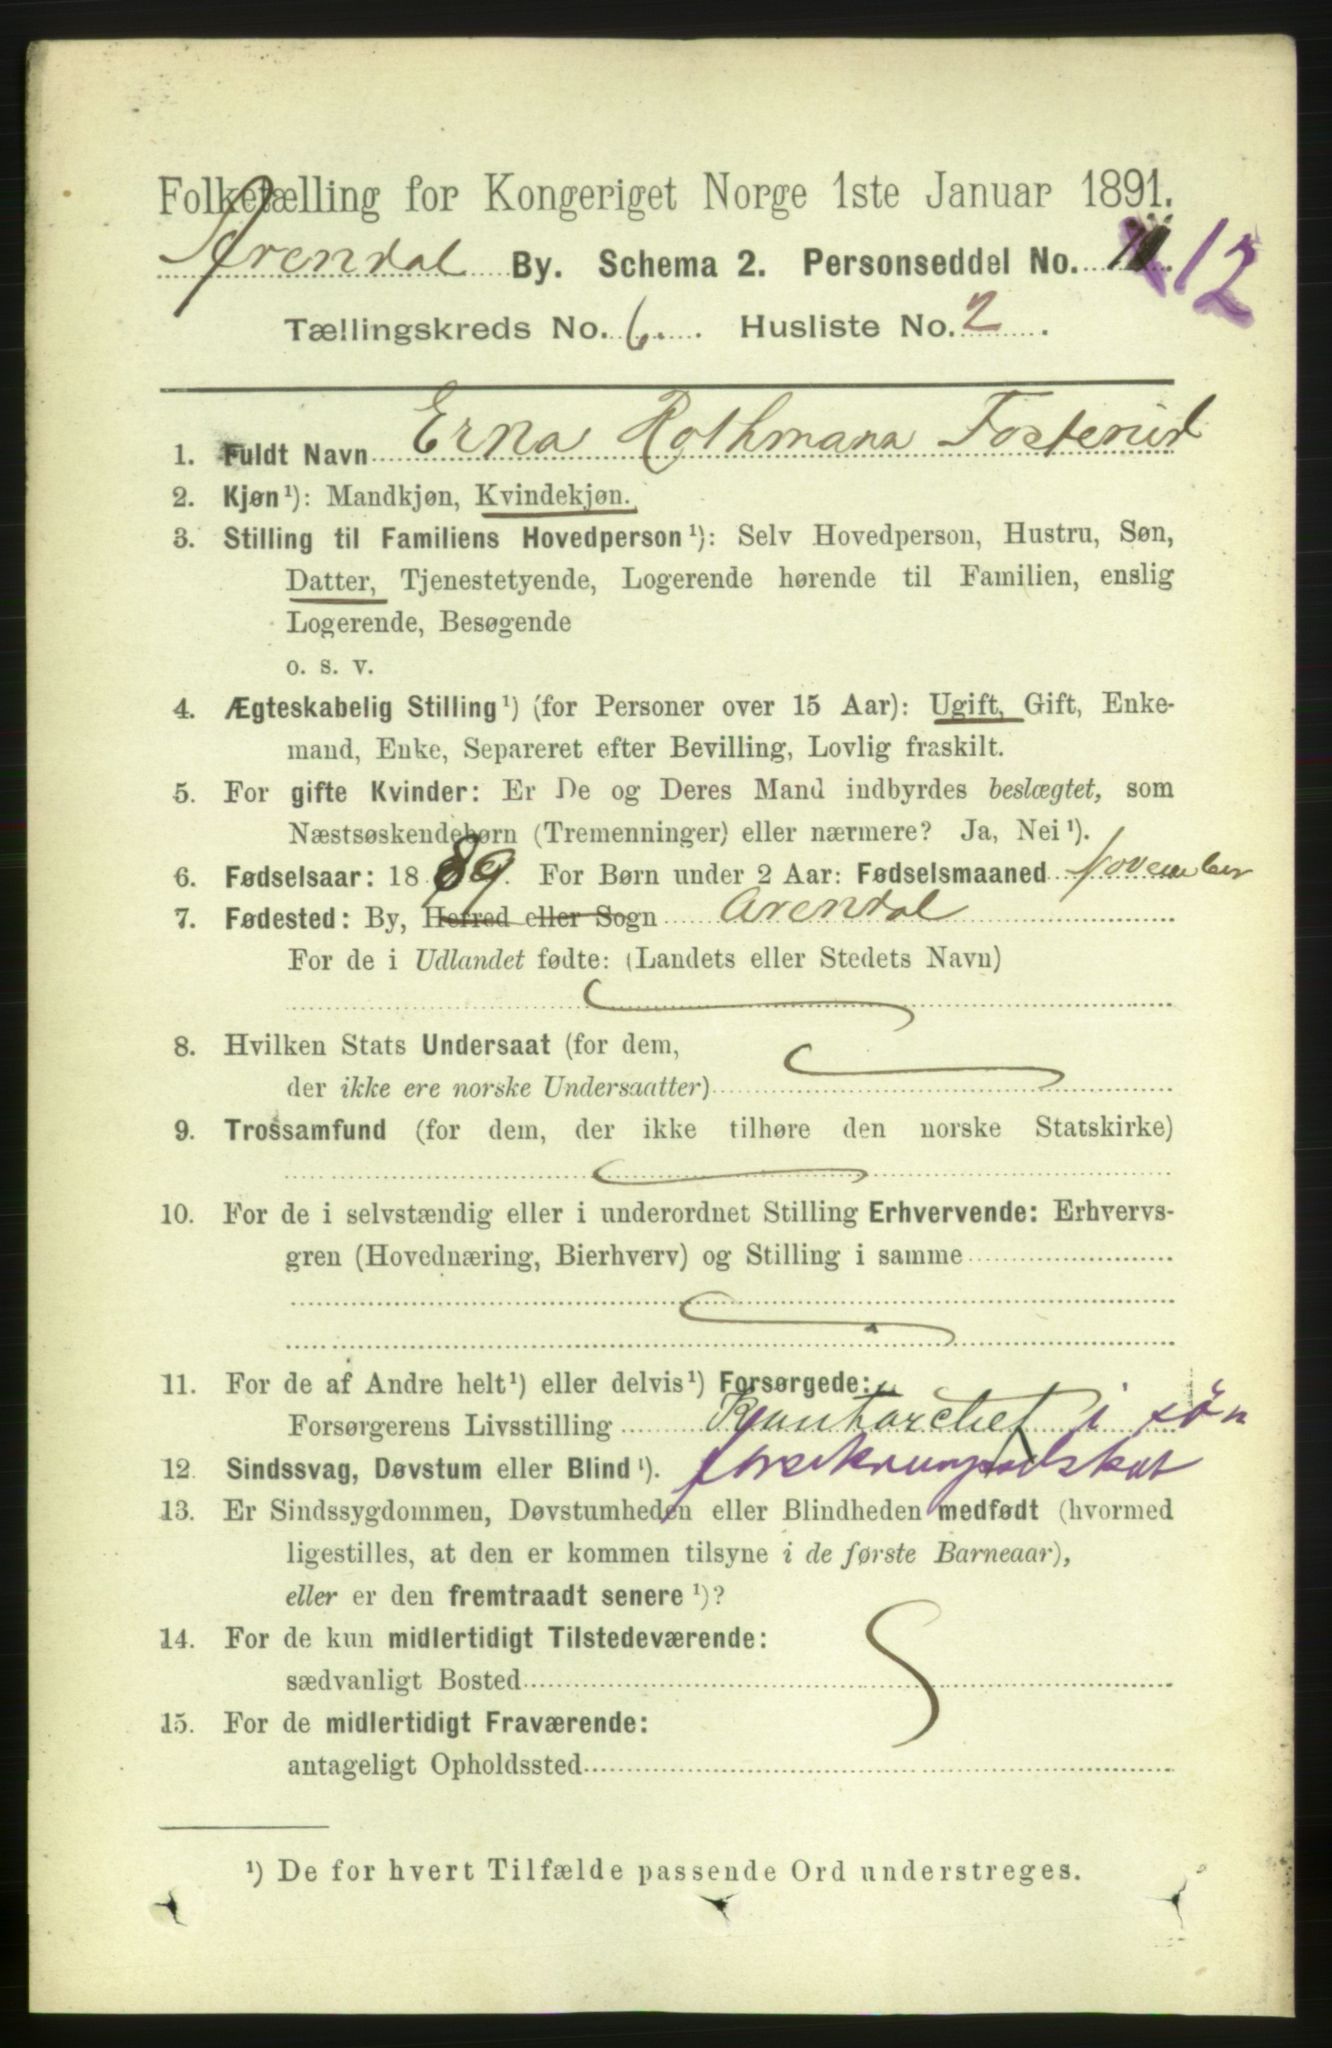 Folketælling for Kongeriget Norge 1ste Januar 1891.
Arendal By. Schema 2. Personseddel No. 11 12
Tællingskreds No. 6. Husliste No. 2.
1. Fuldt Navn Erna Rothmana Fosterud
2. Kjøn¹): Mandkjøn, Kvindekjøn.
3. Stilling til Familiens Hovedperson¹): Selv Hovedperson, Hustru, Søn,
Datter, Tjenestetyende, Logerende hørende til Familien, enslig
Logerende, Besøgende
o. s. v.
4. Ægteskabelig Stilling¹) (for Personer over 15 Aar): Ugift, Gift, Enke-
mand, Enke, Separeret efter Bevilling, Lovlig fraskilt.
5. For gifte Kvinder: Er De og Deres Mand indbyrdes beslægtet, som
Næstsøskendebørn (Tremenninger) eller nærmere? Ja, Nei¹).
6. Fødselsaar: 1889. For Børn under 2 Aar: Fødselsmaaned November
7. Fødested: By, Herred eller Sogn Arendal
For de i Udlandet fødte: (Landets eller Stedets Navn)
8. Hvilken Stats Undersaat (for dem,
der ikke ere norske Undersaatter)
9. Trossamfund (for dem, der ikke tilhøre den norske Statskirke)
10. For de i selvstændig eller i underordnet Stilling Erhvervende: Erhvervs-
gren (Hovednæring, Bierhverv) og Stilling i samme
11. For de af Andre helt¹) eller delvis¹) Forsørgede:
Forsørgerens Livsstilling Kontorchef i sø-
12. Sindssvag, Døvstum eller Blind¹).
13. Er Sindssygdommen, Døvstumheden eller Blindheden medfødt (hvormed
ligestilles, at den er kommen tilsyne i de første Barneaar),
eller er den fremtraadt senere¹)?
14. For de kun midlertidigt Tilstedeværende:
sædvanligt Bosted
15. For de midlertidigt Fraværende:
antageligt Opholdssted
¹) De for hvert Tilfælde passende Ord understreges.